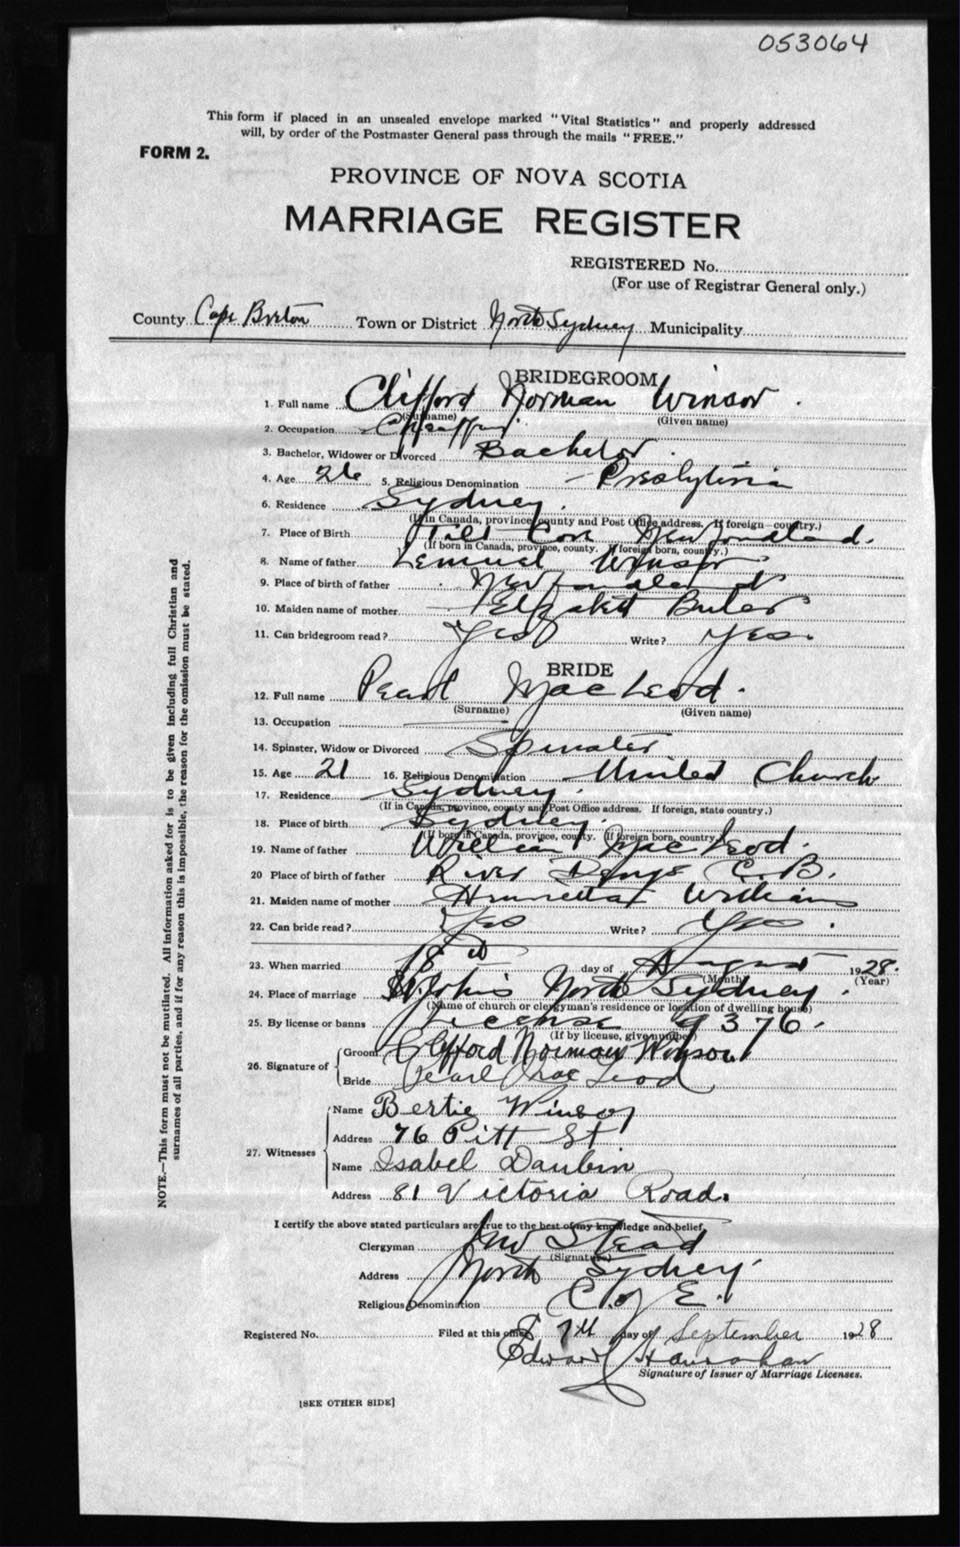 053064
This form if placed in an unsealed envelope marked "Vital Statistics" and properly addressed
will, by order of the Postmaster General pass through the mails "FREE."
FORM 2.
PROVINCE OF NOVA SCOTIA
MARRIAGE REGISTER
REGISTERED No.
(For use of Registrar General only.)
County Cape Breton Town or District North Sydney Municipality
BRIDEGROOM
1. Full name Clifford Norman Winsor
(Surname) (Given name)
2. Occupation
3. Bachelor, Widower or Divorced Bachelor
4. Age 26 5. Religious Denomination Presbyterian
6. Residence Sydney
(If in Canada, province, county and Post Office address. If foreign—country.)
7. Place of Birth Tilt Cove Newfoundland.
(If born in Canada, province, county. If foreign born, country.)
8. Name of father Lemuel Winsor
9. Place of birth of father Newfoundland
10. Maiden name of mother Elizabeth
11. Can bridegroom read? Yes Write? Yes.
BRIDE
12. Full name Pearl MacLeod.
(Surname) (Given name)
13. Occupation
14. Spinster, Widow or Divorced Spinster
15. Age 21 16. Religious Denomination United Church
17. Residence Sydney.
(If in Canada, province, county and Post Office address. If foreign, state country.)
18. Place of birth Sydney.
(If born in Canada, province, county. If foreign born, country
19. Name of father William MacLeod.
20 Place of birth of father River C.B.
21. Maiden name of mother Henrietta Williams
22. Can bride read? Yes Write? Yes.
23. When married 18th day of August 1928.
(Month) (Year)
24. Place of marriage St John's North Sydney.
(Name of church or clergyman's residence or location of dwelling house)
25. By license or banns License 9376.
(If by license, give number)
26. Signature of Groom Clifford Norman Winsor
Bride Pearl MacLeod
27. Witnesses
Name Bertie Winsor
Address 76 Pitt St
Name Isabel Daubin
Address 81 Victoria Road.
I certify the above stated particulars are true to the best of my knowledge and belief.
Clergyman Stead
(Signature)
Address North Sydney.
Religious Denomination C. of E.
Registered No. Filed at this office 7th day of September 1928
Edward Hanrahan
Signature of Issuer of Marriage Licenses.
[SEE OTHER SIDE]
NOTE.—This form must not be mutilated. All information asked for is to be given including full Christian and
surnames of all parties, and if for any reason this is impossible, the reason for the omission must be stated.